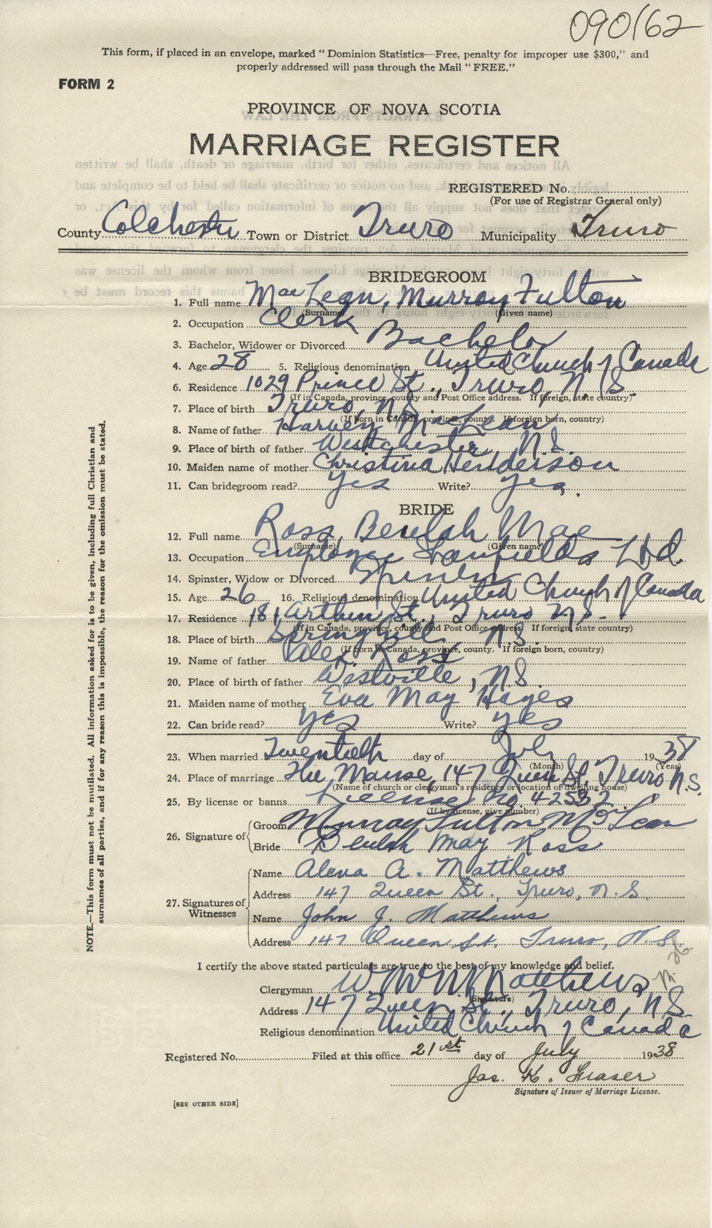 090162
This form, if placed in an envelope, marked "Dominion Statistics—Free, penalty for improper use $300," and
properly addressed will pass through the Mail "FREE."
FORM 2
PROVINCE OF NOVA SCOTIA
MARRIAGE REGISTER
REGISTERED No.
(For use of Registrar General only)
County Colchester Town or District Truro Municipality Truro
BRIDEGROOM
1. Full name MacLean, Murray Fulton
(Surname) (Given name)
2. Occupation Clerk
3. Bachelor, Widower or Divorced Bachelor
4. Age 28 5. Religious denomination United Church of Canada
6. Residence 1029 Prince St., Truro, N.S.
(If in Canada, province, county and Post Office address. If foreign, state country)
7. Place of birth Truro, N.S.
(If born in Canada, province, county. If foreign born, country)
8. Name of father Harvey MacLean
9. Place of birth of father Westchester N.S.
10. Maiden name of mother Christina Henderson
11. Can bridegroom read? Yes Write? Yes.
BRIDE
12. Full name Ross, Beulah Mae
(Surname) (Given name)
13. Occupation Employee Stanfields Ltd.
14. Spinster, Widow or Divorced Spinster
15. Age 26 16. Religious denomination United Church of Canada
17. Residence 181 Arthur St., Truro N.S.
(If in Canada, province, county and Post Office address. If foreign, state country)
18. Place of birth Springhill N.S.
(If born in Canada, province, county. If foreign born, country)
19. Name of father Alex. Ross
20. Place of birth of father Westville, N.S.
21. Maiden name of mother Eva May Hayes
22. Can bride read? Yes Write? Yes
23. When married Twentieth day of July 1938
(Month) (Year)
24. Place of marriage The Manse, 147 Queen St., Truro N.S.
(Name of church or clergyman's residence or location of dwelling house)
25. By license or banns License No. 42532
(If by license, give number)
26. Signature of Groom Murray Fulton McLean
Bride Beulah May Ross
27. Signatures of Witnesses
Name Alena A. Matthews
Address 147 Queen St. Truro, N.S.
Name John J. Matthews
Address 147 Queen St. Truro, N.S.
I certify the above stated particulars are true to the best of my knowledge and belief.
Clergyman Matthews
(Signature)
Address 147 Queen St., Truro, N.S.
Religious denomination United Church of Canada
Registered No. Filed at this office 21st day of July 1938
Jas. K. Fraser
Signature of Issuer of Marriage License.
[SEE OTHER SIDE]
NOTE.—This form must not be mutilated. All information asked for is to be given, including full Christian and
surnames of all parties, and if for any reason this is impossible, the reason for the omission must be stated.